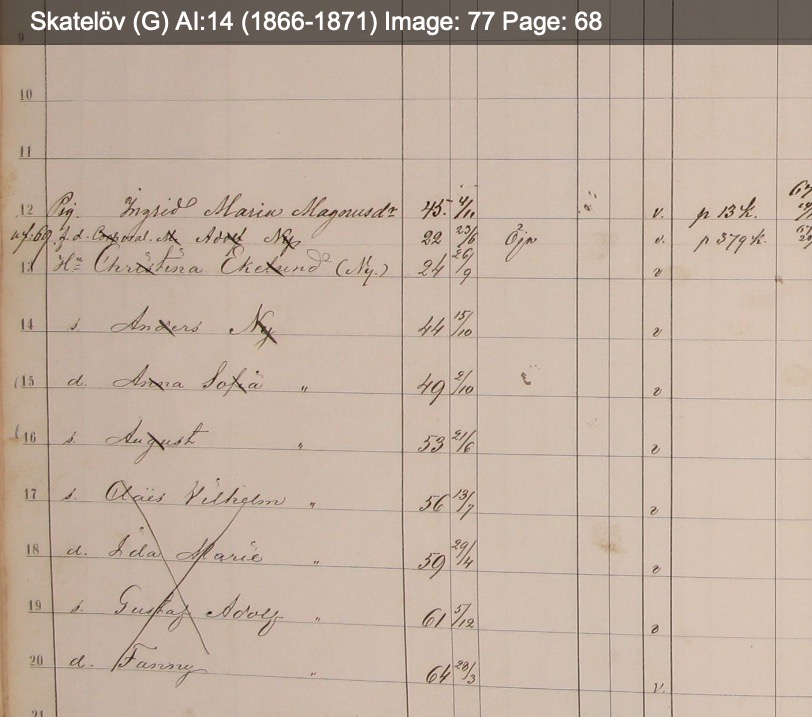 Skatelöv (G) AI:14 (1866-1871) Image: 77 Page: 68
9
10
11
12 Pig. Ingrid Maria Magnusdr 45. 4/11 v. p 13 k.
69 f. d. Corporal. M. Adolf Ny 22 23/6 Öja v. p 379 k.
13 Hu Christina Ekelund (Ny.) 24 26/9 v
14 s. Anders Ny 44 15/10 v
15 d. Anna Sofia " 49 2/10 v
16 s. August " 53 21/6 v
17 s. Claës Vilhelm " 56 13/7 v
18 d. Ida Marie " 59 29/4 v
19 s. Gustaf Adolf " 61 5/12 v
20 d. Fanny " 64 28/3 v.
21